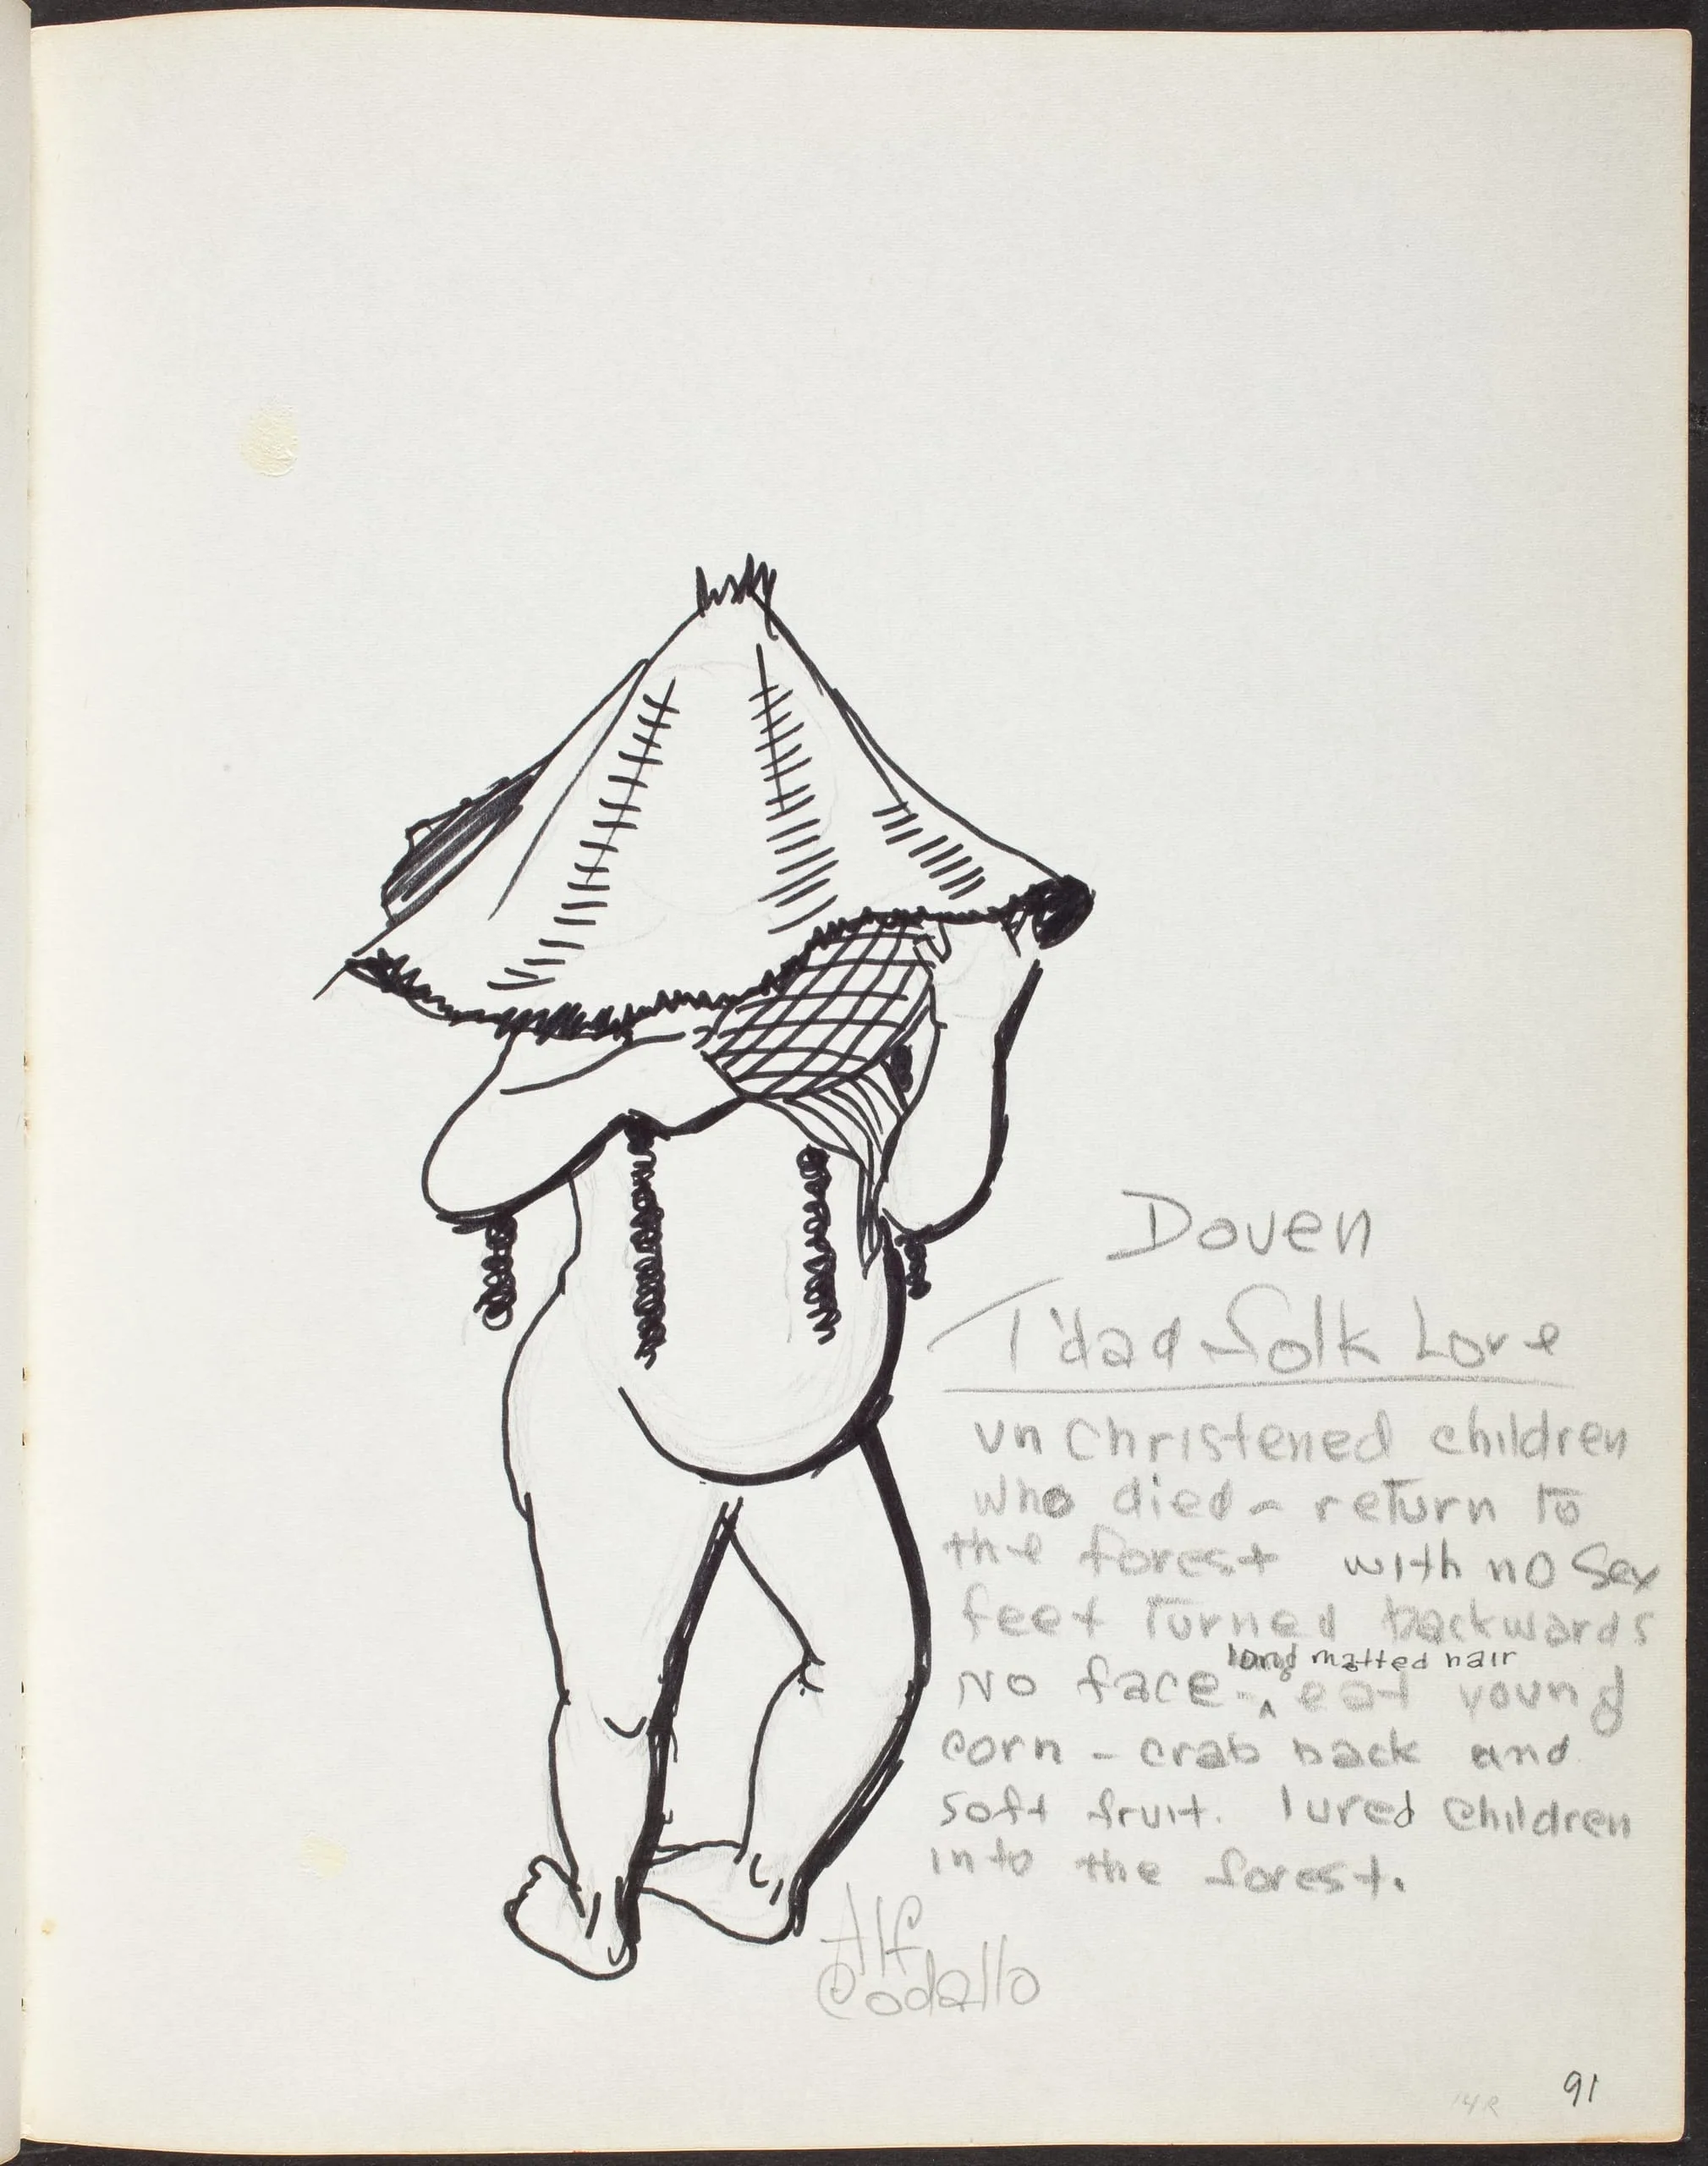 Douen
T'dad folk Lore
un Christened children
who died - return to
the forest with no Sex
feet Turned backwards
long matted hair
No face - ^ eat young
corn - crab back and
soft fruit. lured children
into the forest.
Alf
Codallo
14R
91